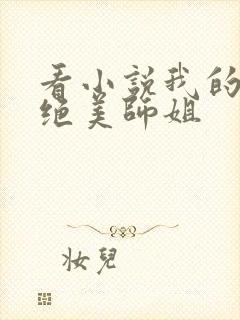 看小説我的
绝美師姐
妝兒